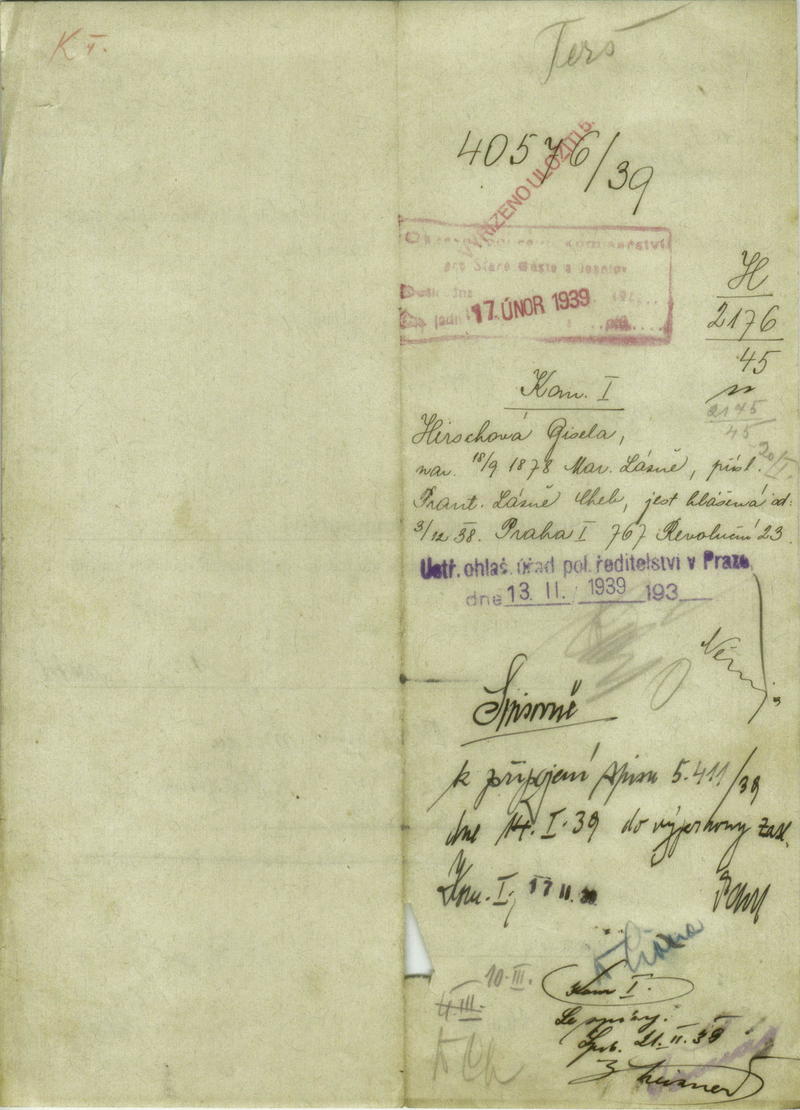 K I.
Terš
40576/39
VYŘÍZENO ULOŽITI
pro Staré Město a Josefov
17. ÚNOR 1939
H
2176
45
2145
45
20/I.
Kom. I
Hirschová Gisela,
nar. 18/9 1878 Mar. Lázně, přísl.
Frant. Lázně Cheb, jest hlášena od:
3/12 38. Praha I 767 Revoluční 23.
Ustř. ohlaš. úřad pol. ředitelství v Praze,
dne 13. II. 1939 193
Spisovně
k připojení spisu 5.411/39
dne 14. I. 39 do výpravny zasl.
Kom. I, 17 II.
10. III.
4. III.
Kom I.
21. II. 39